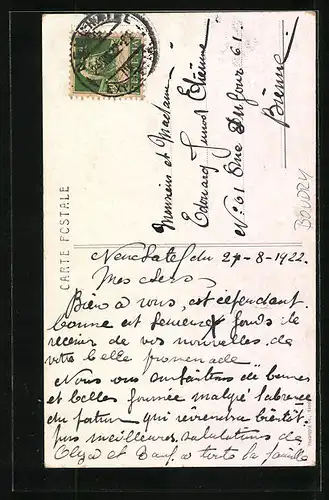 CARTE POSTALE
Monsieur et Madame
Edouard Junod Etienne
No 61 Rue Dufour 61
Bienne
BOUDRY
Neuchatel du 27-8-1922
Mes chers
Bien à vous, est cependant
bonne et fonds de
recevoir de vos nouvelles, de
votre belle promenade
Nous de bonnes
et belles journée malgré l'absence
du patron qui reviendra bientôt.
meilleures salutations de
Olga et à toute la famille